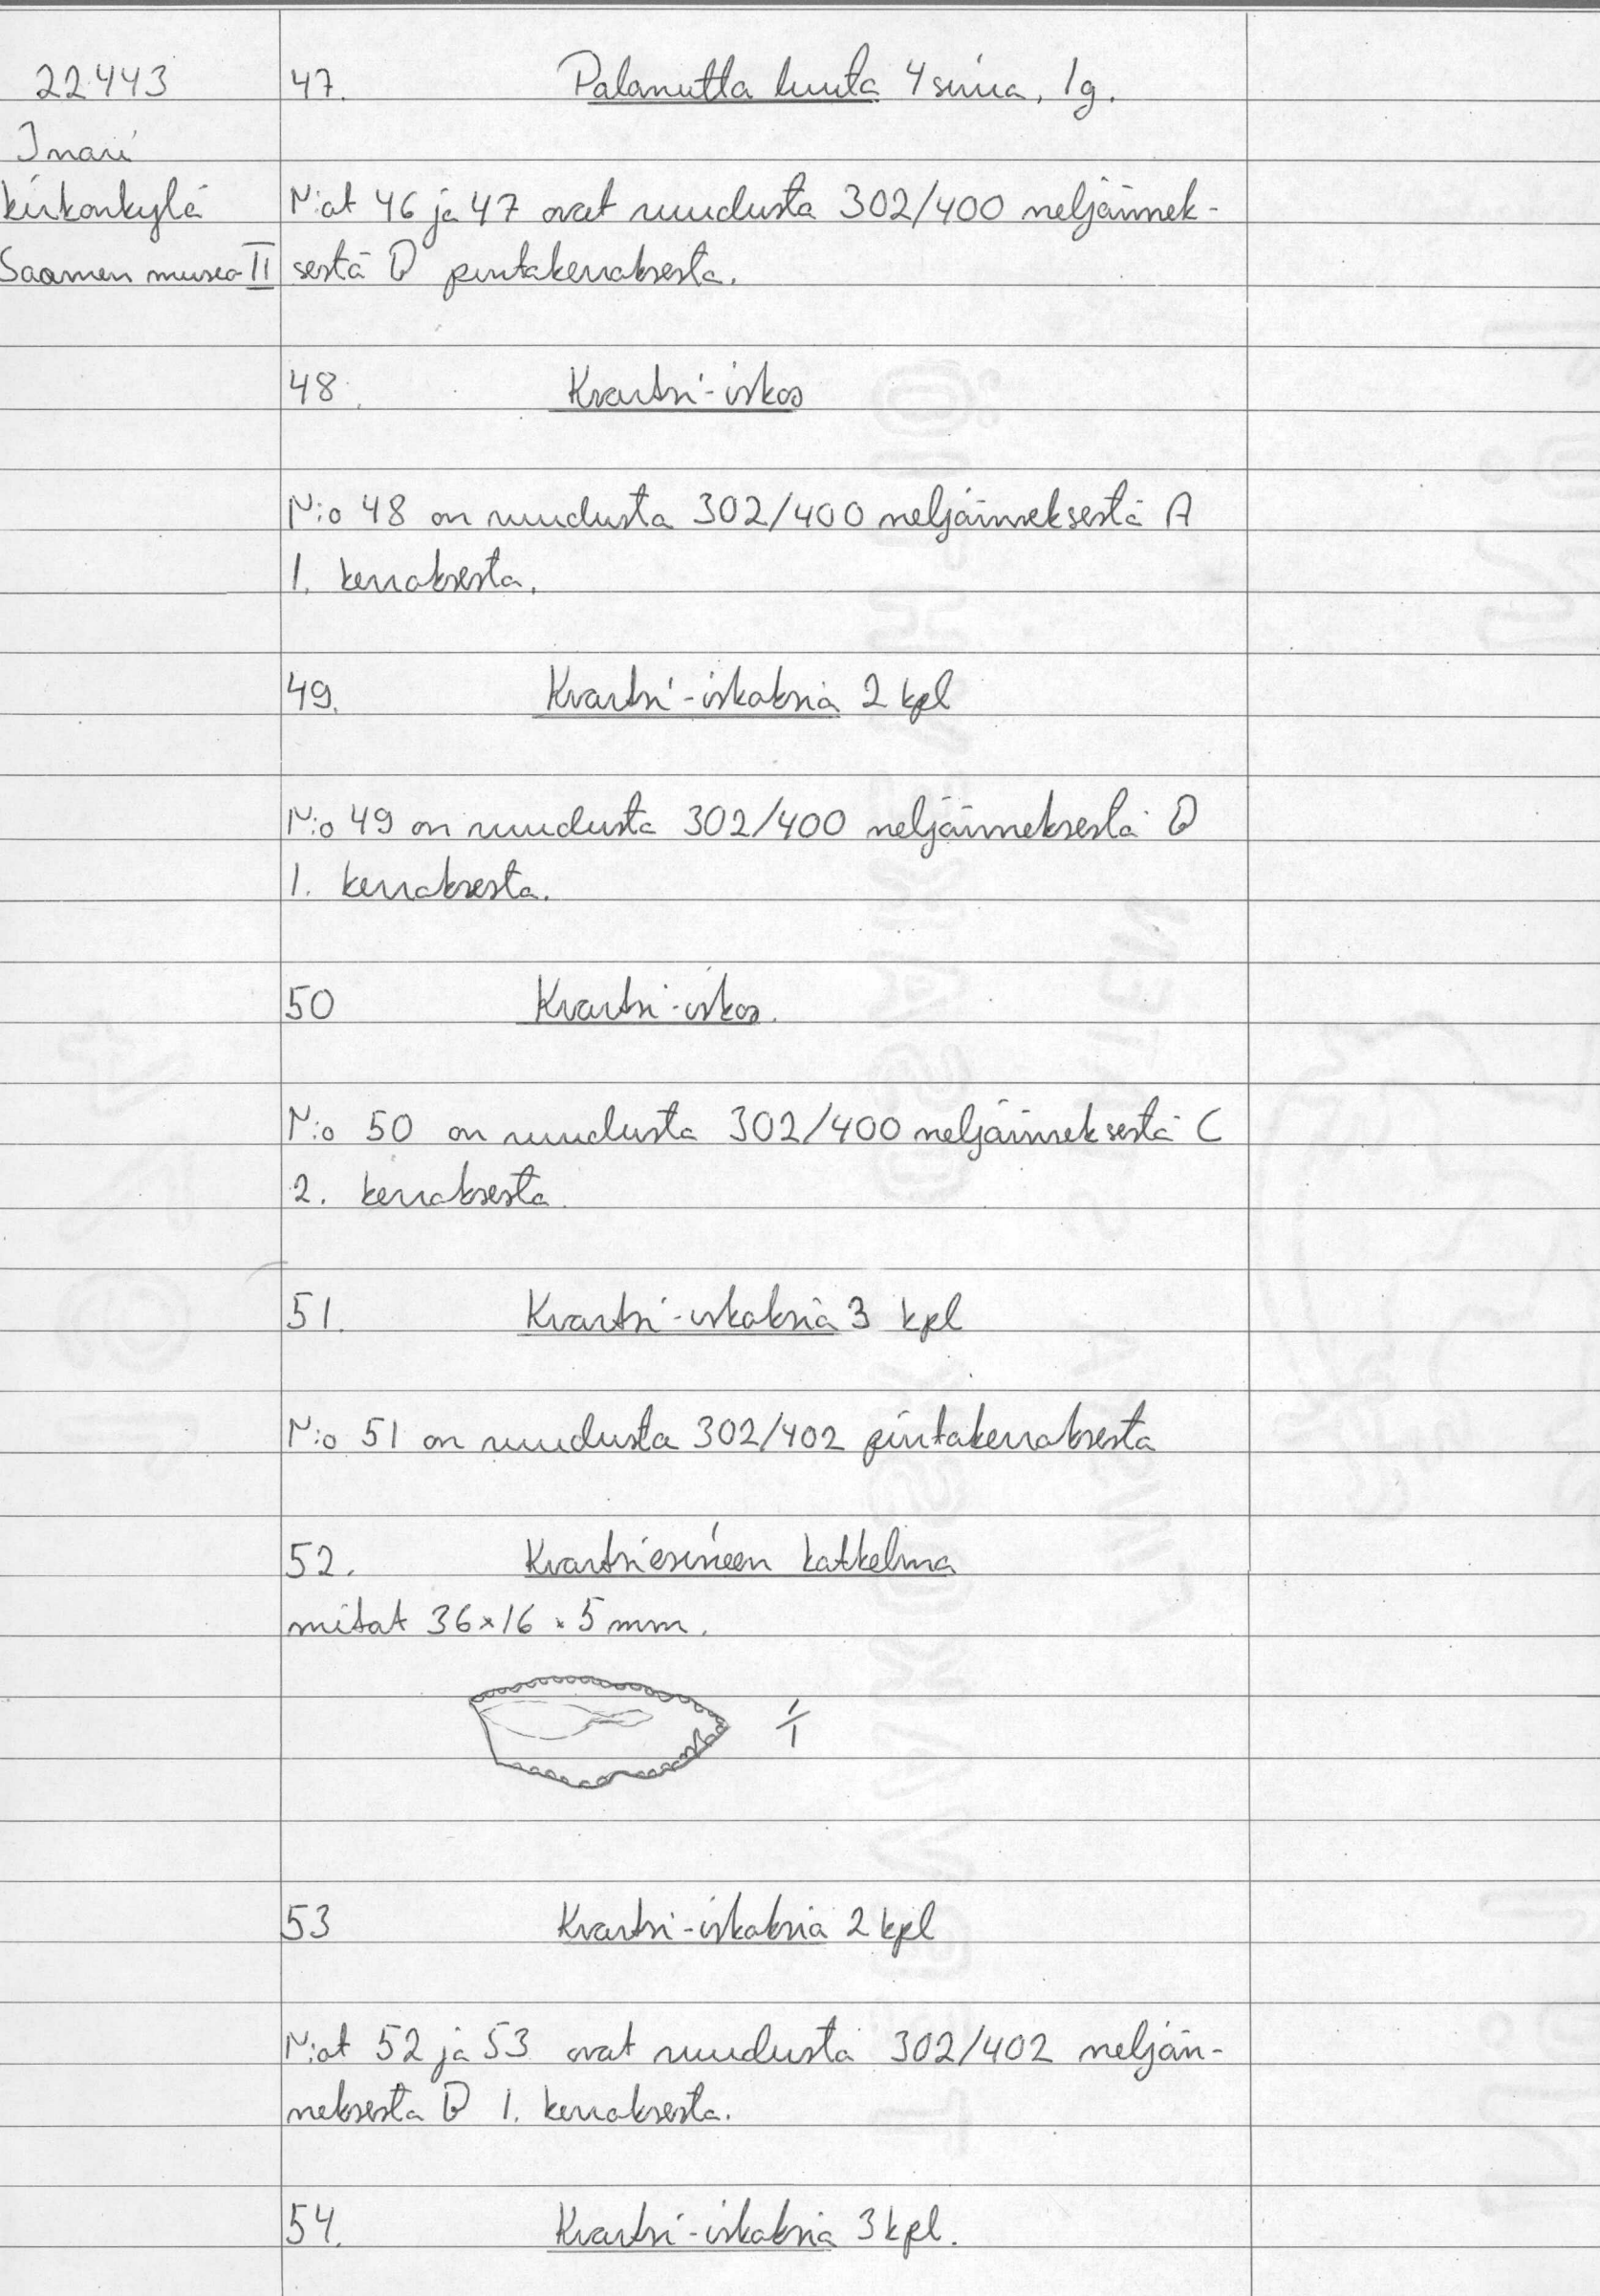 22443
Inari
kirkonkylä
Saamen museo II
47. Palanutta luuta 4 sirua, 1g.
N:at 46 ja 47 ovat ruudusta 302/400 neljännek-
sestä D pintakerroksesta.
48. Kvartsi-iskos
N:o 48 on ruudusta 302/400 neljänneksestä A
1. kerroksesta.
49. Kvartsi-iskoksia 2 kpl
N:o 49 on ruudusta 302/400 neljänneksestä D
1. kerroksesta.
50 Kvartsi-iskos.
N:o 50 on ruudusta 302/400 neljänneksestä C
2. kerroksesta.
51. Kvartsi-iskoksia 3 kpl
N:o 51 on ruudusta 302/402 pintakerroksesta
52. Kvartsiesineen katkelma
mitat 36x16x5 mm.
1/1
53 Kvartsi-iskoksia 2 kpl
N:at 52 ja 53 ovat ruudusta 302/402 neljän-
neksestä D 1. kerroksesta.
54. Kvartsi-iskoksia 3 kpl.